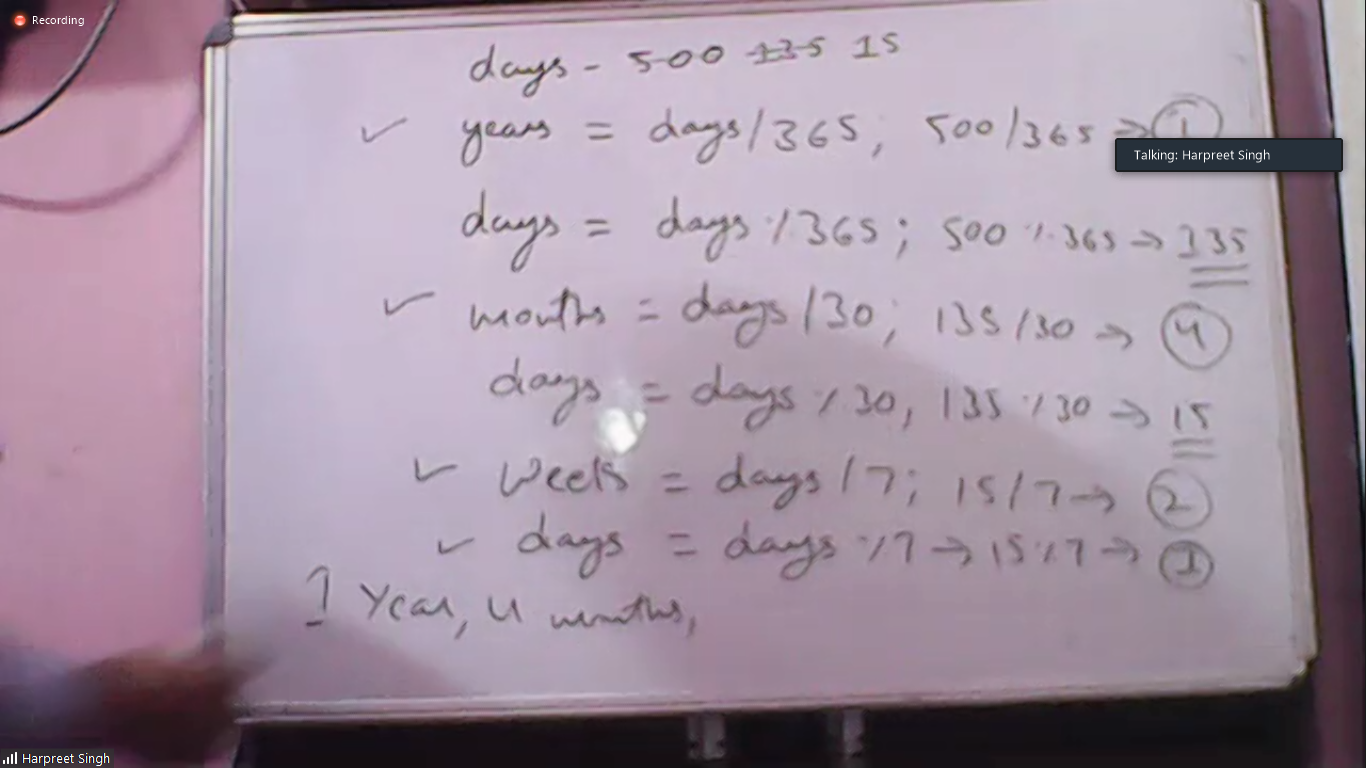 Recording
days - 500 135 15
years = days/365; 500/365 → 1
Talking: Harpreet Singh
days = days % 365; 500 % 365 → 135
months = days/30; 135/30 → 4
days = days % 30, 135 % 30 → 15
weeks = days/7; 15/7 → 2
days = days % 7 → 15 % 7 → 1
1 Year, 4 months,
Harpreet Singh